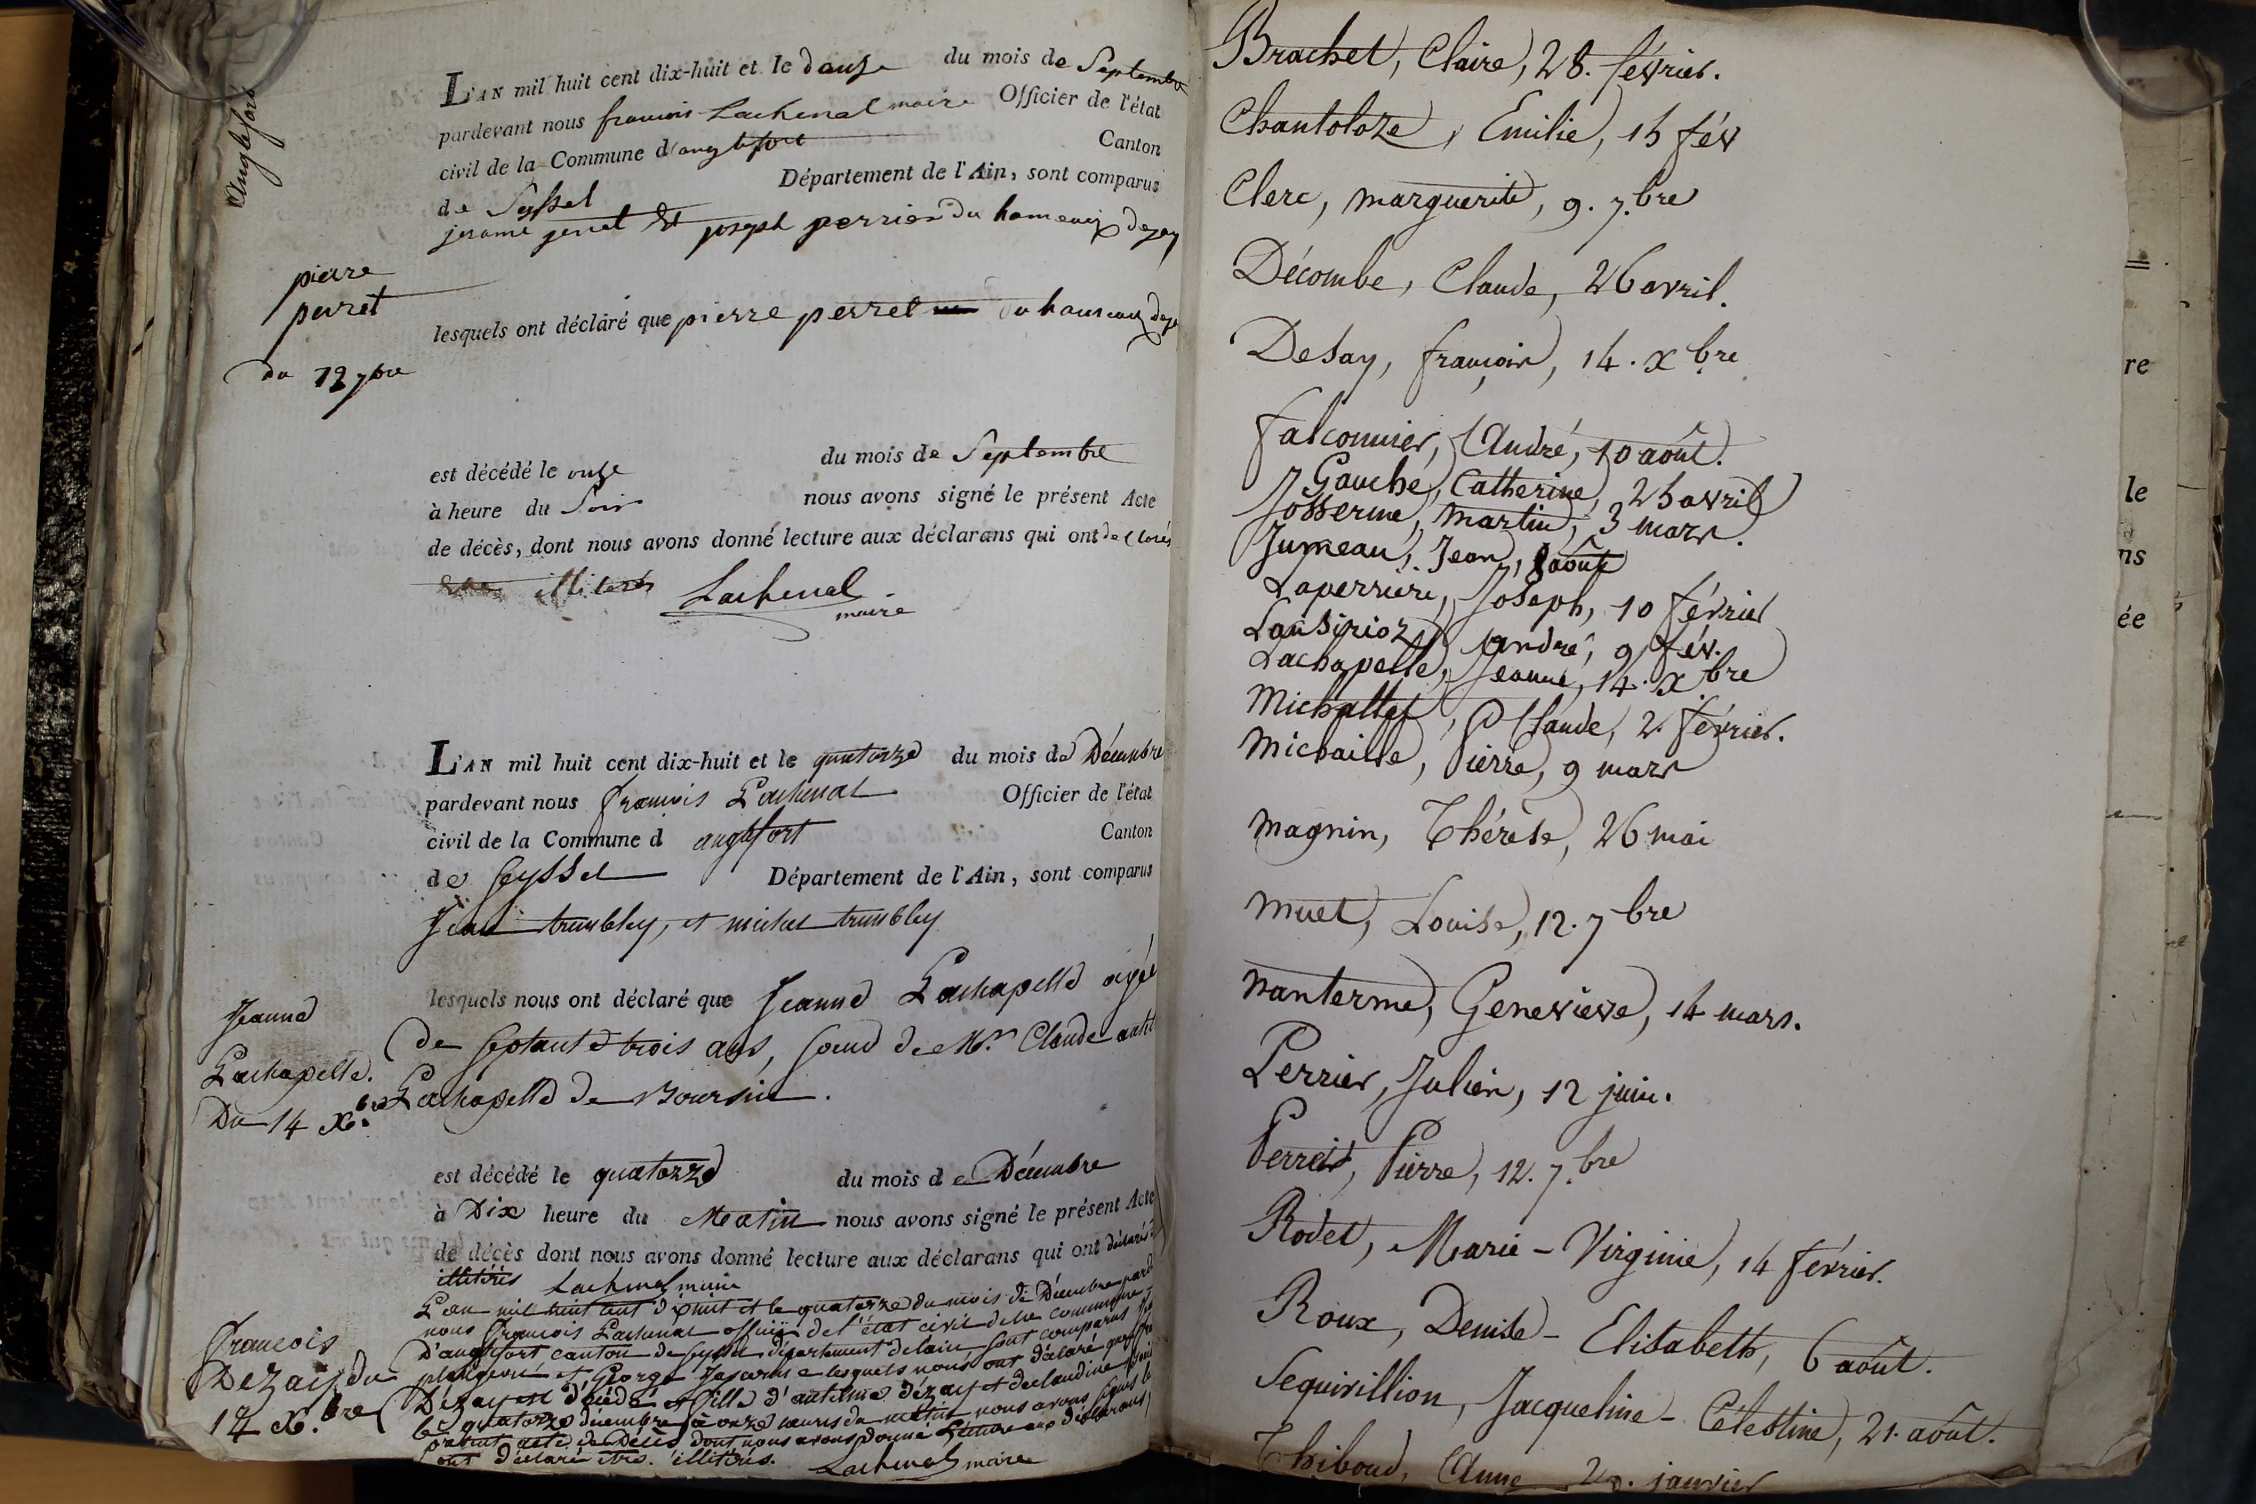 Anglefort
L'AN mil huit cent dix-huit et le douze du mois de Septembre
pardevant nous françois Lachenal maire Officier de l'état
civil de la Commune d'anglefort Canton
de Seyssel Département de l'Ain, sont comparus
jerome genet et joseph perrier du hameaux
pierre
perret
du 12 7bre
lesquels ont déclaré que pierre perret du hameaux
est décédé le onze du mois de Septembre
à heure du Soir nous avons signé le présent Acte
de décès, dont nous avons donné lecture aux déclarans qui ont declarés
Lachenal
maire
L'AN mil huit cent dix-huit et le quatorze du mois de Décembre
pardevant nous françois Lachenal Officier de l'état
civil de la Commune d anglefort Canton
de Seyssel Département de l'Ain, sont comparus
Jean trumbley, et michel trumbley
Jeanne
Lachapelle.
Du 14 Xbre
lesquels nous ont déclaré que Jeanne Lachapelle agée
de septante trois ans, soeur de Mr. Claude
Lachapelle de
est décédé le quatorze du mois de Décembre
à Dix heure du Matin nous avons signé le présent Acte
de décès dont nous avons donné lecture aux déclarans qui ont déclarés
illitérés Lachenal maire
françois
Dezay, du
14 X.bre
L'an mil huit cent dixhuit et le quatorze du mois de Décembre pard
nous françois Lachenal officier de l'état civil de la commune
D'anglefort canton de Seyssel département de lain, sont comparus
et George lesquels nous ont déclaré que
Dézay est décédé fille d'antelme dézay et de claudine
le quatorze décembre à onze heures du matin nous avons signés le
présent acte de Décès dont nous avons donné Lecture aux déclarans
ont déclaré être illitérés. Lachenal maire
Brachet, Claire, 28. février.
Chantoloze, Emilie, 15 fév
Clerc, marguerite, 9. 7.bre
Décombe, Claude, 26 avril.
Desay, françois, 14. X bre
falconnier, André, 10 août.
Gauché, Catherine, 25 avril
Josserme, Martin, 3 mars.
Jumeau, Jean, 8 août
Laperriere, Joseph, 10 février
André, 9 fév.
Lachapelle, Jeanne, 14. X bre
Michallet, Claude, 2. février.
Michaille, Pierre, 9 mars
Magnin, Thérèse, 26 mai
Muet, Louise, 12. 7 bre
Nanterme, Genevieve, 14 mars.
Perrier, Julien, 12 juin.
Perret, Pierre, 12. 7.bre
Rodet, Marie - Virginie, 14 février.
Roux, Denise - Elisabeth, 6 août.
Sequivillion, Jacqueline - Célestine, 21. août.
Thiboud, Anne janvier
re
le
ns
ée